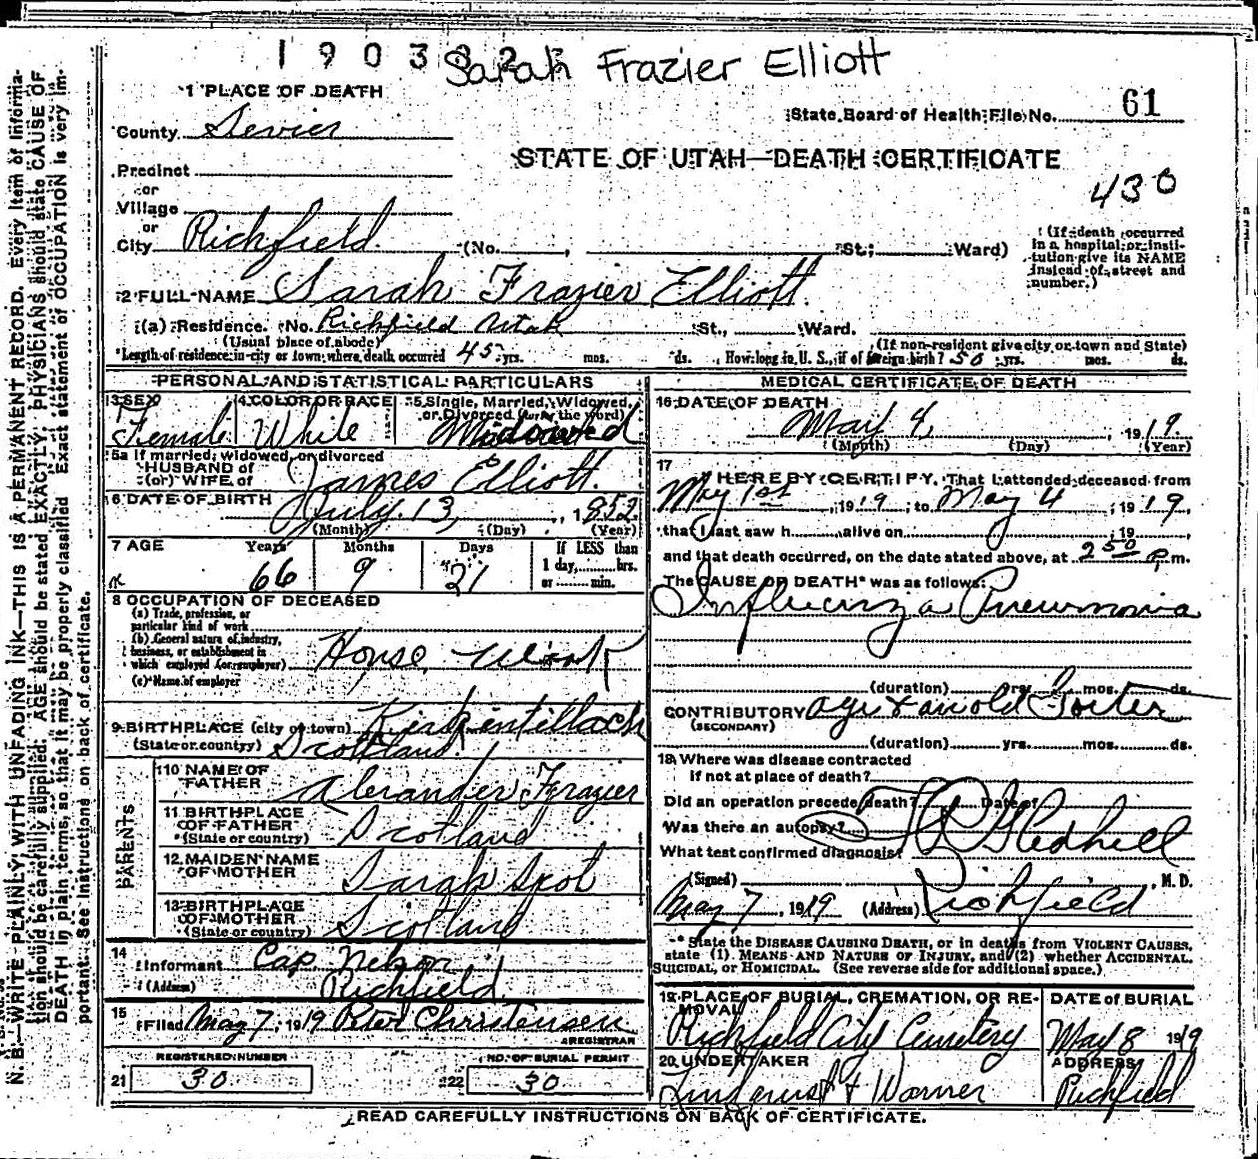 Sarah Frazier Elliott
1 PLACE OF DEATH
State Board of Health File No. 61
County Sevier
STATE OF UTAH—DEATH CERTIFICATE
430
Precinct
or
Village
or
City Richfield (No. , St.; Ward)
(If death occurred in a hospital or insti-tution give its NAME instead of street and number.)
2 FULL NAME Sarah Frazier Elliott
(a) Residence. No. Richfield Utah St., Ward.
(Usual place of abode) (If non-resident give city or town and State)
Length of residence in city or town where death occurred 45 yrs. mos. ds. How long in U. S., if of foreign birth? 50 yrs. mos. ds.
PERSONAL AND STATISTICAL PARTICULARS
3 SEX 4 COLOR OR RACE 5 Single, Married, Widowed, or Divorced (write the word)
Female White Widowed
5a If married, widowed, or divorced
HUSBAND of
(or) WIFE of James Elliott.
6 DATE OF BIRTH July 13, 1852
(Month) (Day) (Year)
7 AGE Years Months Days If LESS than
1 day, hrs.
or min.
66 9 21
8 OCCUPATION OF DECEASED
(a) Trade, profession, or particular kind of work
(b) General nature of industry, business, or establishment in which employed (or employer) House Work
(c) Name of employer
9 BIRTHPLACE (city or town) Kirkentilloch
(State or country) Scotland.
PARENTS
10 NAME OF FATHER Alexander Frazier
11 BIRTHPLACE OF FATHER (State or country) Scotland
12 MAIDEN NAME OF MOTHER Sarah Scot
13 BIRTHPLACE OF MOTHER (State or country) Scotland
14 Informant Cap. Nelson
(Address) Richfield.
15 Filed May 7, 1919 Peter Christensen
REGISTRAR
REGISTERED NUMBER NO. OF BURIAL PERMIT
21 30 22 30
MEDICAL CERTIFICATE OF DEATH
16 DATE OF DEATH
May 4, 1919.
(Month) (Day) (Year)
17 I HEREBY CERTIFY, That I attended deceased from
May 1st, 1919, to May 4, 1919,
that I last saw h alive on , 19 ,
and that death occurred, on the date stated above, at 2 50 p. m.
The CAUSE OF DEATH* was as follows:
Influenza Pneumonia
(duration) yrs. mos. ds.
CONTRIBUTORY age & an old Goiter
(SECONDARY)
(duration) yrs. mos. ds.
18 Where was disease contracted
if not at place of death?
Did an operation precede death? Date of
Was there an autopsy?
What test confirmed diagnosis?
(Signed) Gledhill, M. D.
May 7, 1919 (Address) Richfield
* State the DISEASE CAUSING DEATH, or in deaths from VIOLENT CAUSES, state (1) MEANS AND NATURE OF INJURY, and (2) whether ACCIDENTAL, SUICIDAL, or HOMICIDAL. (See reverse side for additional space.)
19 PLACE OF BURIAL, CREMATION, OR RE-MOVAL DATE of BURIAL
Richfield City Cemetery May 8 1919
20 UNDERTAKER ADDRESS
& Warner Richfield
READ CAREFULLY INSTRUCTIONS ON BACK OF CERTIFICATE.
N. B.—WRITE PLAINLY, WITH UNFADING INK—THIS IS A PERMANENT RECORD. Every item of informa-
tion should be carefully supplied. AGE should be stated EXACTLY. PHYSICIANS should state CAUSE OF
DEATH in plain terms, so that it may be properly classified. Exact statement of OCCUPATION is very im-
portant. See instructions on back of certificate.